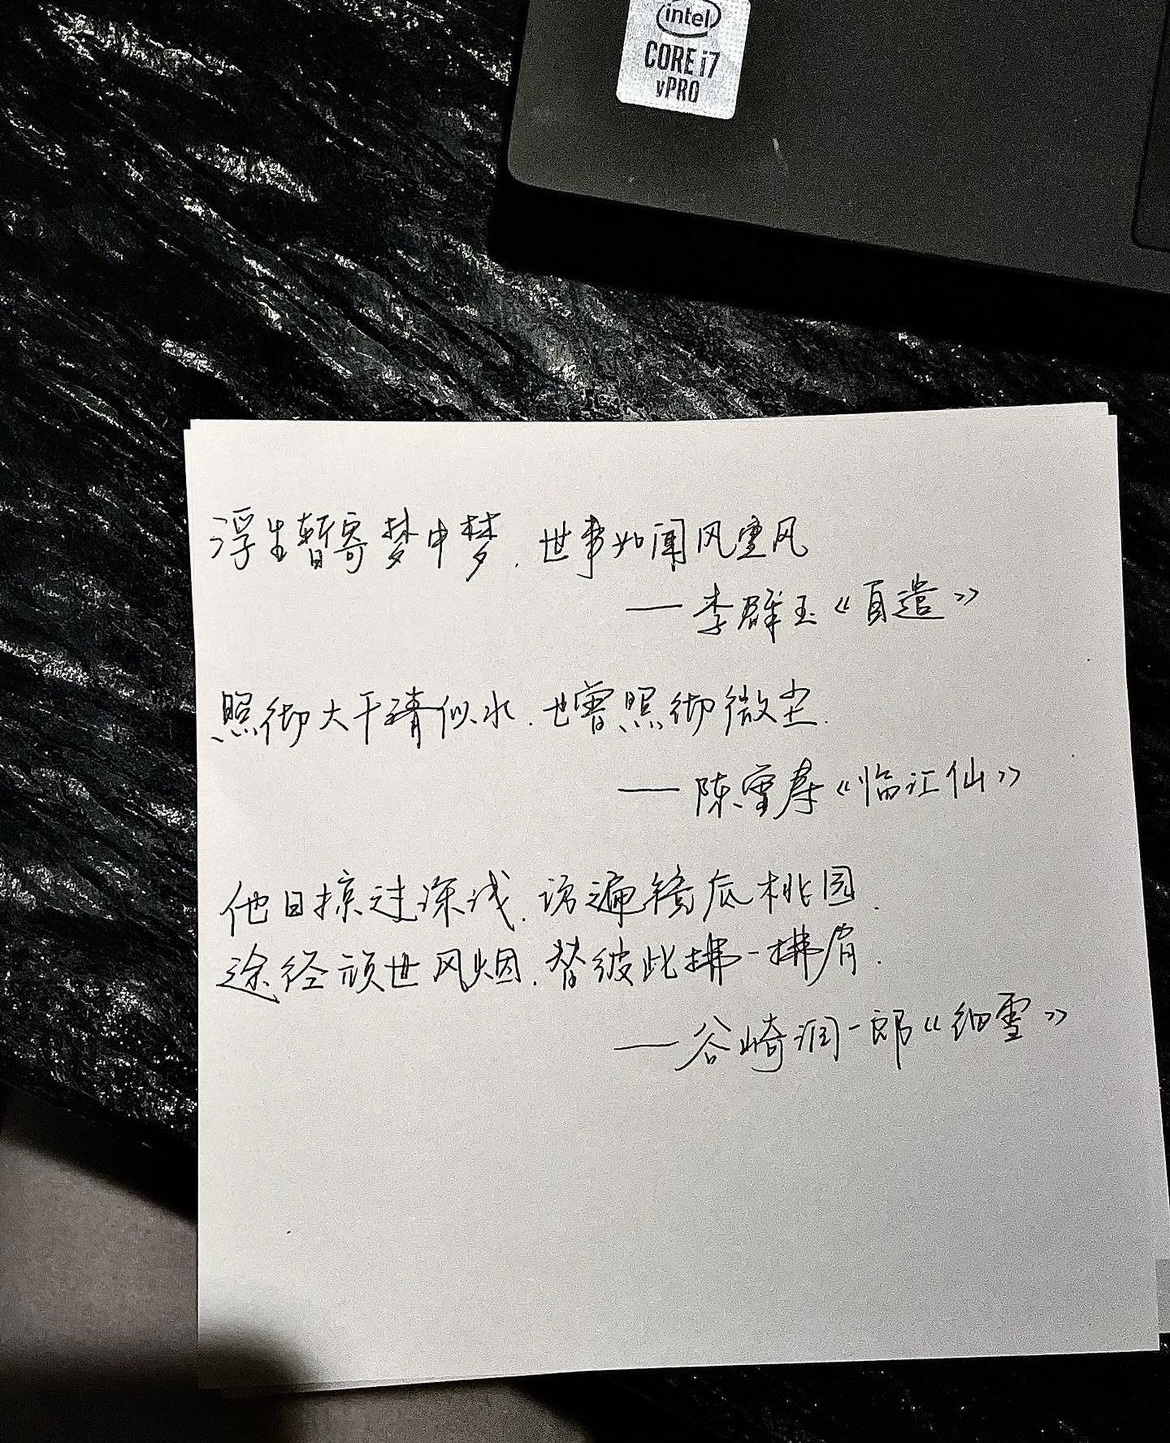 intel
CORE i7
vPRO
浮生暂寄梦中梦,世事如闻风里风
——李群玉《自遣》
照彻大千清似水,也曾照彻微尘.
——陈曾寿《临江仙》
他日掠过深浅,访遍镜瓜桃园.
途经顽世风烟,替彼此拂一拂肩.
——谷崎润一郎《细雪》